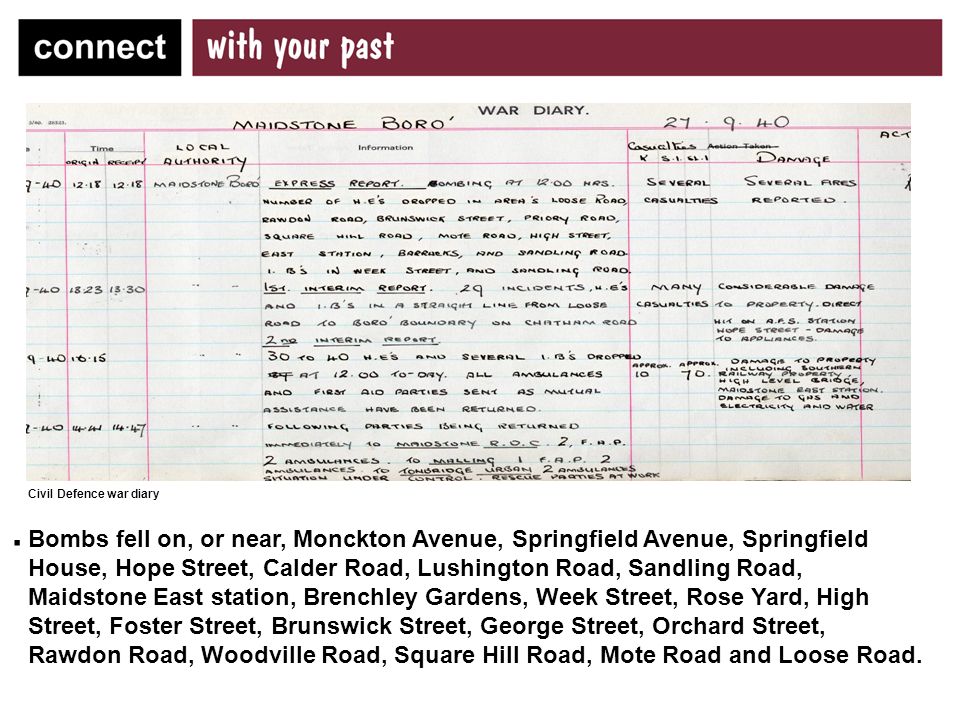 connect with your past
WAR DIARY.
S/no. 28523.
MAIDSTONE BORO' 27.9.40
Time LOCAL AUTHORITY Information Casualties Action Taken ACT
ORIGIN RECEIPT K S.I. SL.I DAMAGE
9-40 12.18 12.18 MAIDSTONE BORO' EXPRESS REPORT. BOMBING AT 12.00 HRS. SEVERAL SEVERAL FIRES
NUMBER OF H.E'S DROPPED IN AREA'S LOOSE ROAD, CASUALTIES REPORTED.
RAWDON ROAD, BRUNSWICK STREET, PRIORY ROAD,
SQUARE HILL ROAD, MOTE ROAD, HIGH STREET,
EAST STATION, BARRACKS, AND SANDLING ROAD.
I.B'S IN WEEK STREET, AND SANDLING ROAD.
9-40 13.23 13.30 1ST. INTERIM REPORT. 29 INCIDENTS, H.E'S MANY CONSIDERABLE DAMAGE
AND I.B'S IN A STRAIGHT LINE FROM LOOSE CASUALTIES TO PROPERTY. DIRECT
ROAD TO BORO' BOUNDARY ON CHATHAM ROAD HIT ON A.F.S. STATION
HOPE STREET - DAMAGE
2ND INTERIM REPORT. TO APPLIANCES.
9-40 16.15 30 TO 40 H.E'S AND SEVERAL I.B'S DROPPED APPROX. APPROX. DAMAGE TO PROPERTY
AT 12.00 TO-DAY. ALL AMBULANCES 10 70. INCLUDING SOUTHERN
RAILWAY PROPERTY,
AND FIRST AID PARTIES SENT AS MUTUAL HIGH LEVEL BRIDGE,
MAIDSTONE EAST STATION.
ASSISTANCE HAVE BEEN RETURNED. DAMAGE TO GAS AND
ELECTRICITY AND WATER
9-40 14.41 14.47 FOLLOWING PARTIES BEING RETURNED
IMMEDIATELY TO MAIDSTONE R.O.C. 2, F.A.P.
2 AMBULANCES. TO MALLING 1 F.A.P. 2
AMBULANCES. TO TONBRIDGE URBAN 2 AMBULANCES
SITUATION UNDER CONTROL. RESCUE PARTIES AT WORK
Civil Defence war diary
Bombs fell on, or near, Monckton Avenue, Springfield Avenue, Springfield
House, Hope Street, Calder Road, Lushington Road, Sandling Road,
Maidstone East station, Brenchley Gardens, Week Street, Rose Yard, High
Street, Foster Street, Brunswick Street, George Street, Orchard Street,
Rawdon Road, Woodville Road, Square Hill Road, Mote Road and Loose Road.